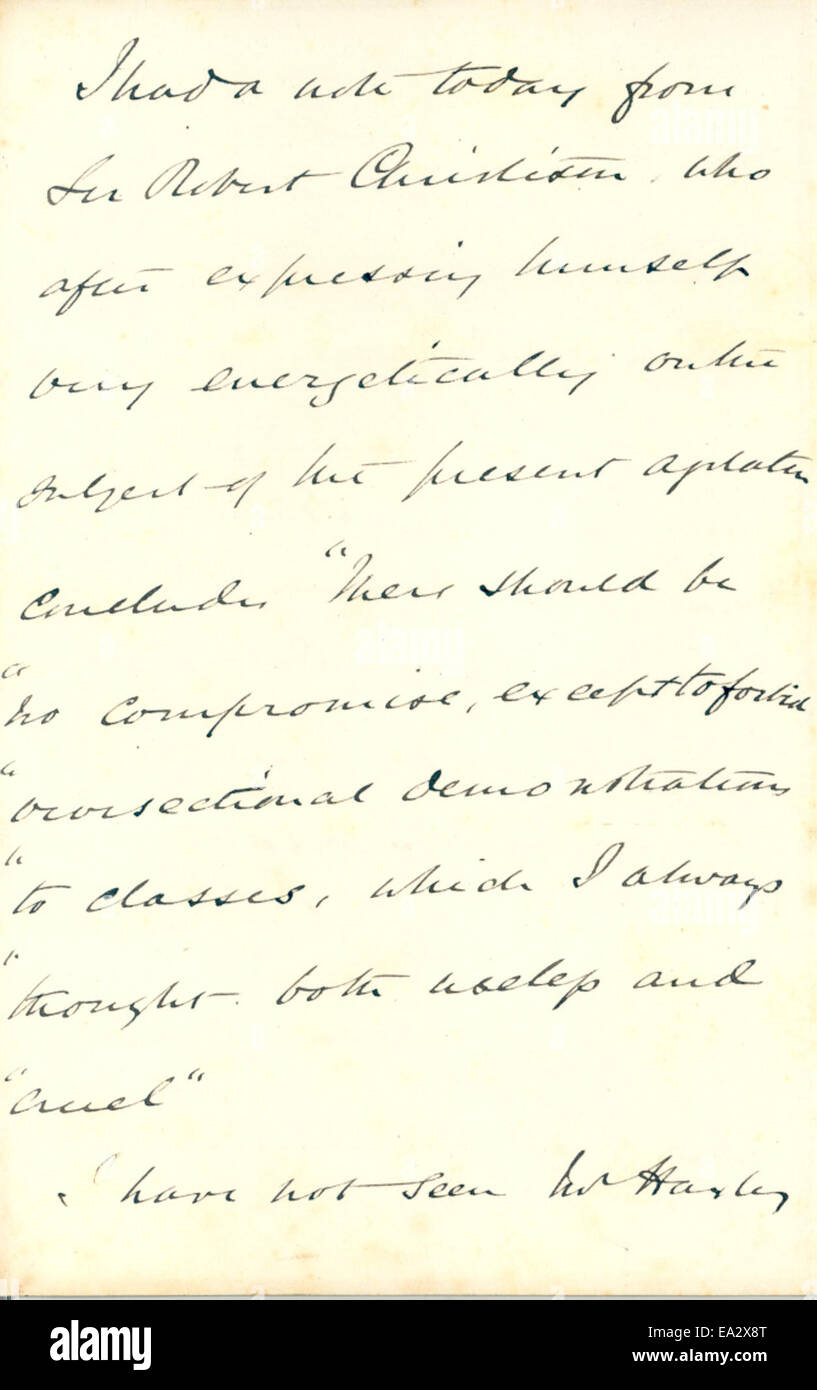 I had a note today from
Sir Robert Christison who
after expressing himself
very energetically on the
subject of the present agitation
concludes "There should be
"no compromise, except to forbid
"vivisectional demonstrations
"to classes, which I always
"thought both useless and
"cruel"
I have not seen Mr Huxley
alamy
alamy
a
a
alamy
Image ID: EA2X8T
www.alamy.com